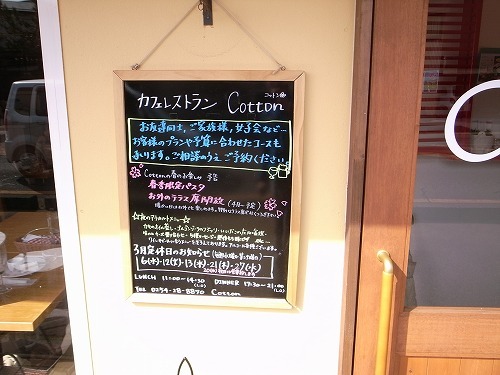 コットン
カフェレストラン Cotton
お友達同士、ご家族様、女子会など…
お客様のプランや予算に合わせたコースも
承ります。ご相談のうえ、ご予約ください
Cottonの春のお楽しみ 予告
春季限定パスタ
お外のテラス席開放 (4月〜予定)
☆夜のアラカルトメニュー☆
3月定休日のお知らせ
6(水)・12(火)・13(水)・21(木)・27(水)
LUNCH 11:00〜14:30 DINNER 17:30〜21:00
(L.O) (L.O)
TEL 0254-28-8870 Cotton
a